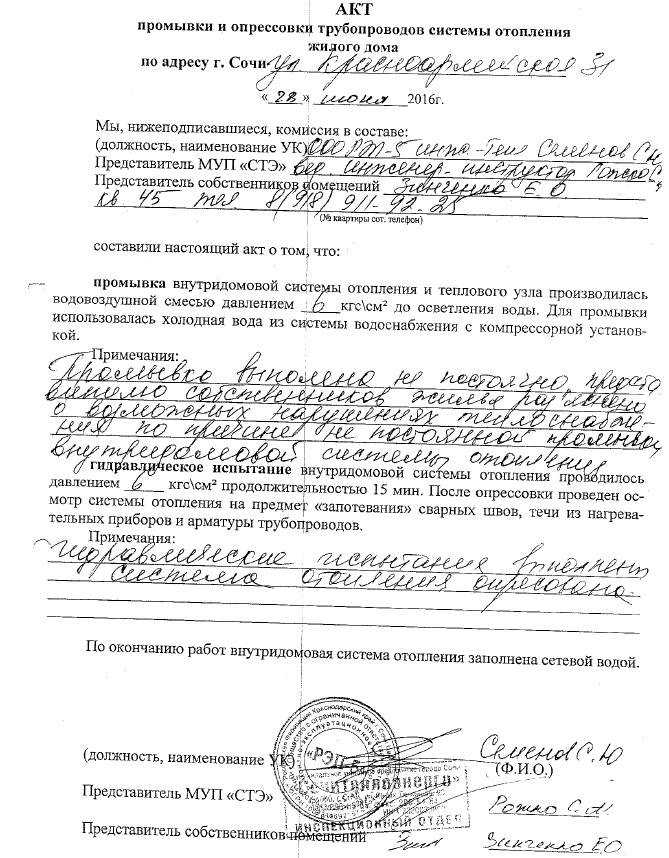 АКТ
промывки и опрессовки трубопроводов системы отопления
жилого дома
по адресу г. Сочи ул Красноармейская 31
«28» июня 2016г.
Мы, нижеподписавшиеся, комиссия в составе:
(должность, наименование УК) ООО РЭП-5 Семенов С.Ю
Представитель МУП «СТЭ» вед. инженер-инструктор Рожко С.А
Представитель собственников помещений Зинченко Е.О
кв 45 тел 8(918) 911-92-25
(№ квартиры сот. телефон)
составили настоящий акт о том, что:
промывка внутридомовой системы отопления и теплового узла производилась
водовоздушной смесью давлением 6 кгс\см² до осветления воды. Для промывки
использовалась холодная вода из системы водоснабжения с компрессорной установ-
кой.
Примечания:
Промывка выполнена не постоячно, предста
вителю собственников жилья раз'яснено
о возможных нарушениях теплоснабже-
ния по причине не постоянной промывки
внутридомовой системы отопления
гидравлическое испытание внутридомовой системы отопления проводилось
давлением 6 кгс\см² продолжительностью 15 мин. После опрессовки проведен ос-
мотр системы отопления на предмет «запотевания» сварных швов, течи из нагрева-
тельных приборов и арматуры трубопроводов.
Примечания:
Гидравлические испытания выполнены
система отопления опресована.
По окончанию работ внутридомовая система отопления заполнена сетевой водой.
«РЭП-5»
(должность, наименование УК) Семенов С.Ю
(Ф.И.О.)
«Сочитеплоэнерго»
Представитель МУП «СТЭ» Рожко С.А
ИНСПЕКЦИОННЫЙ ОТДЕЛ
Представитель собственников помещений Зинченко ЕО